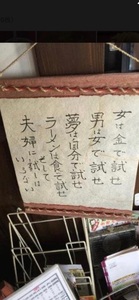 女は金で試せ
男は女で試せ
夢は自分で試せ
ラーメンは食て試せ
そして
夫婦に試しは
いらない